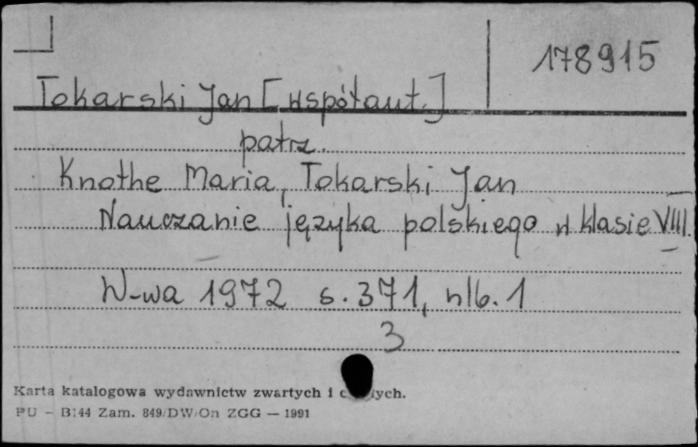 178915
Tokarski Jan [współaut.]
patrz.
Knothe Maria, Tokarski Jan
Nauczanie języka polskiego w klasie VIII.
W-wa 1972 s. 371, nlb. 1
3
Karta katalogowa wydawnictw zwartych i
PU - B144 Zam. 849/DW/On ZGG — 1991